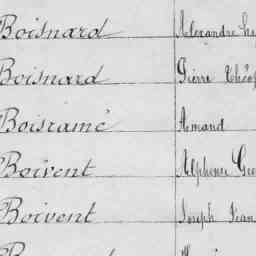 Boisnard Alexandre
Boisnard Pierre
Boisramé Amand
Boivent Alphonse
Boivent Joseph Jean